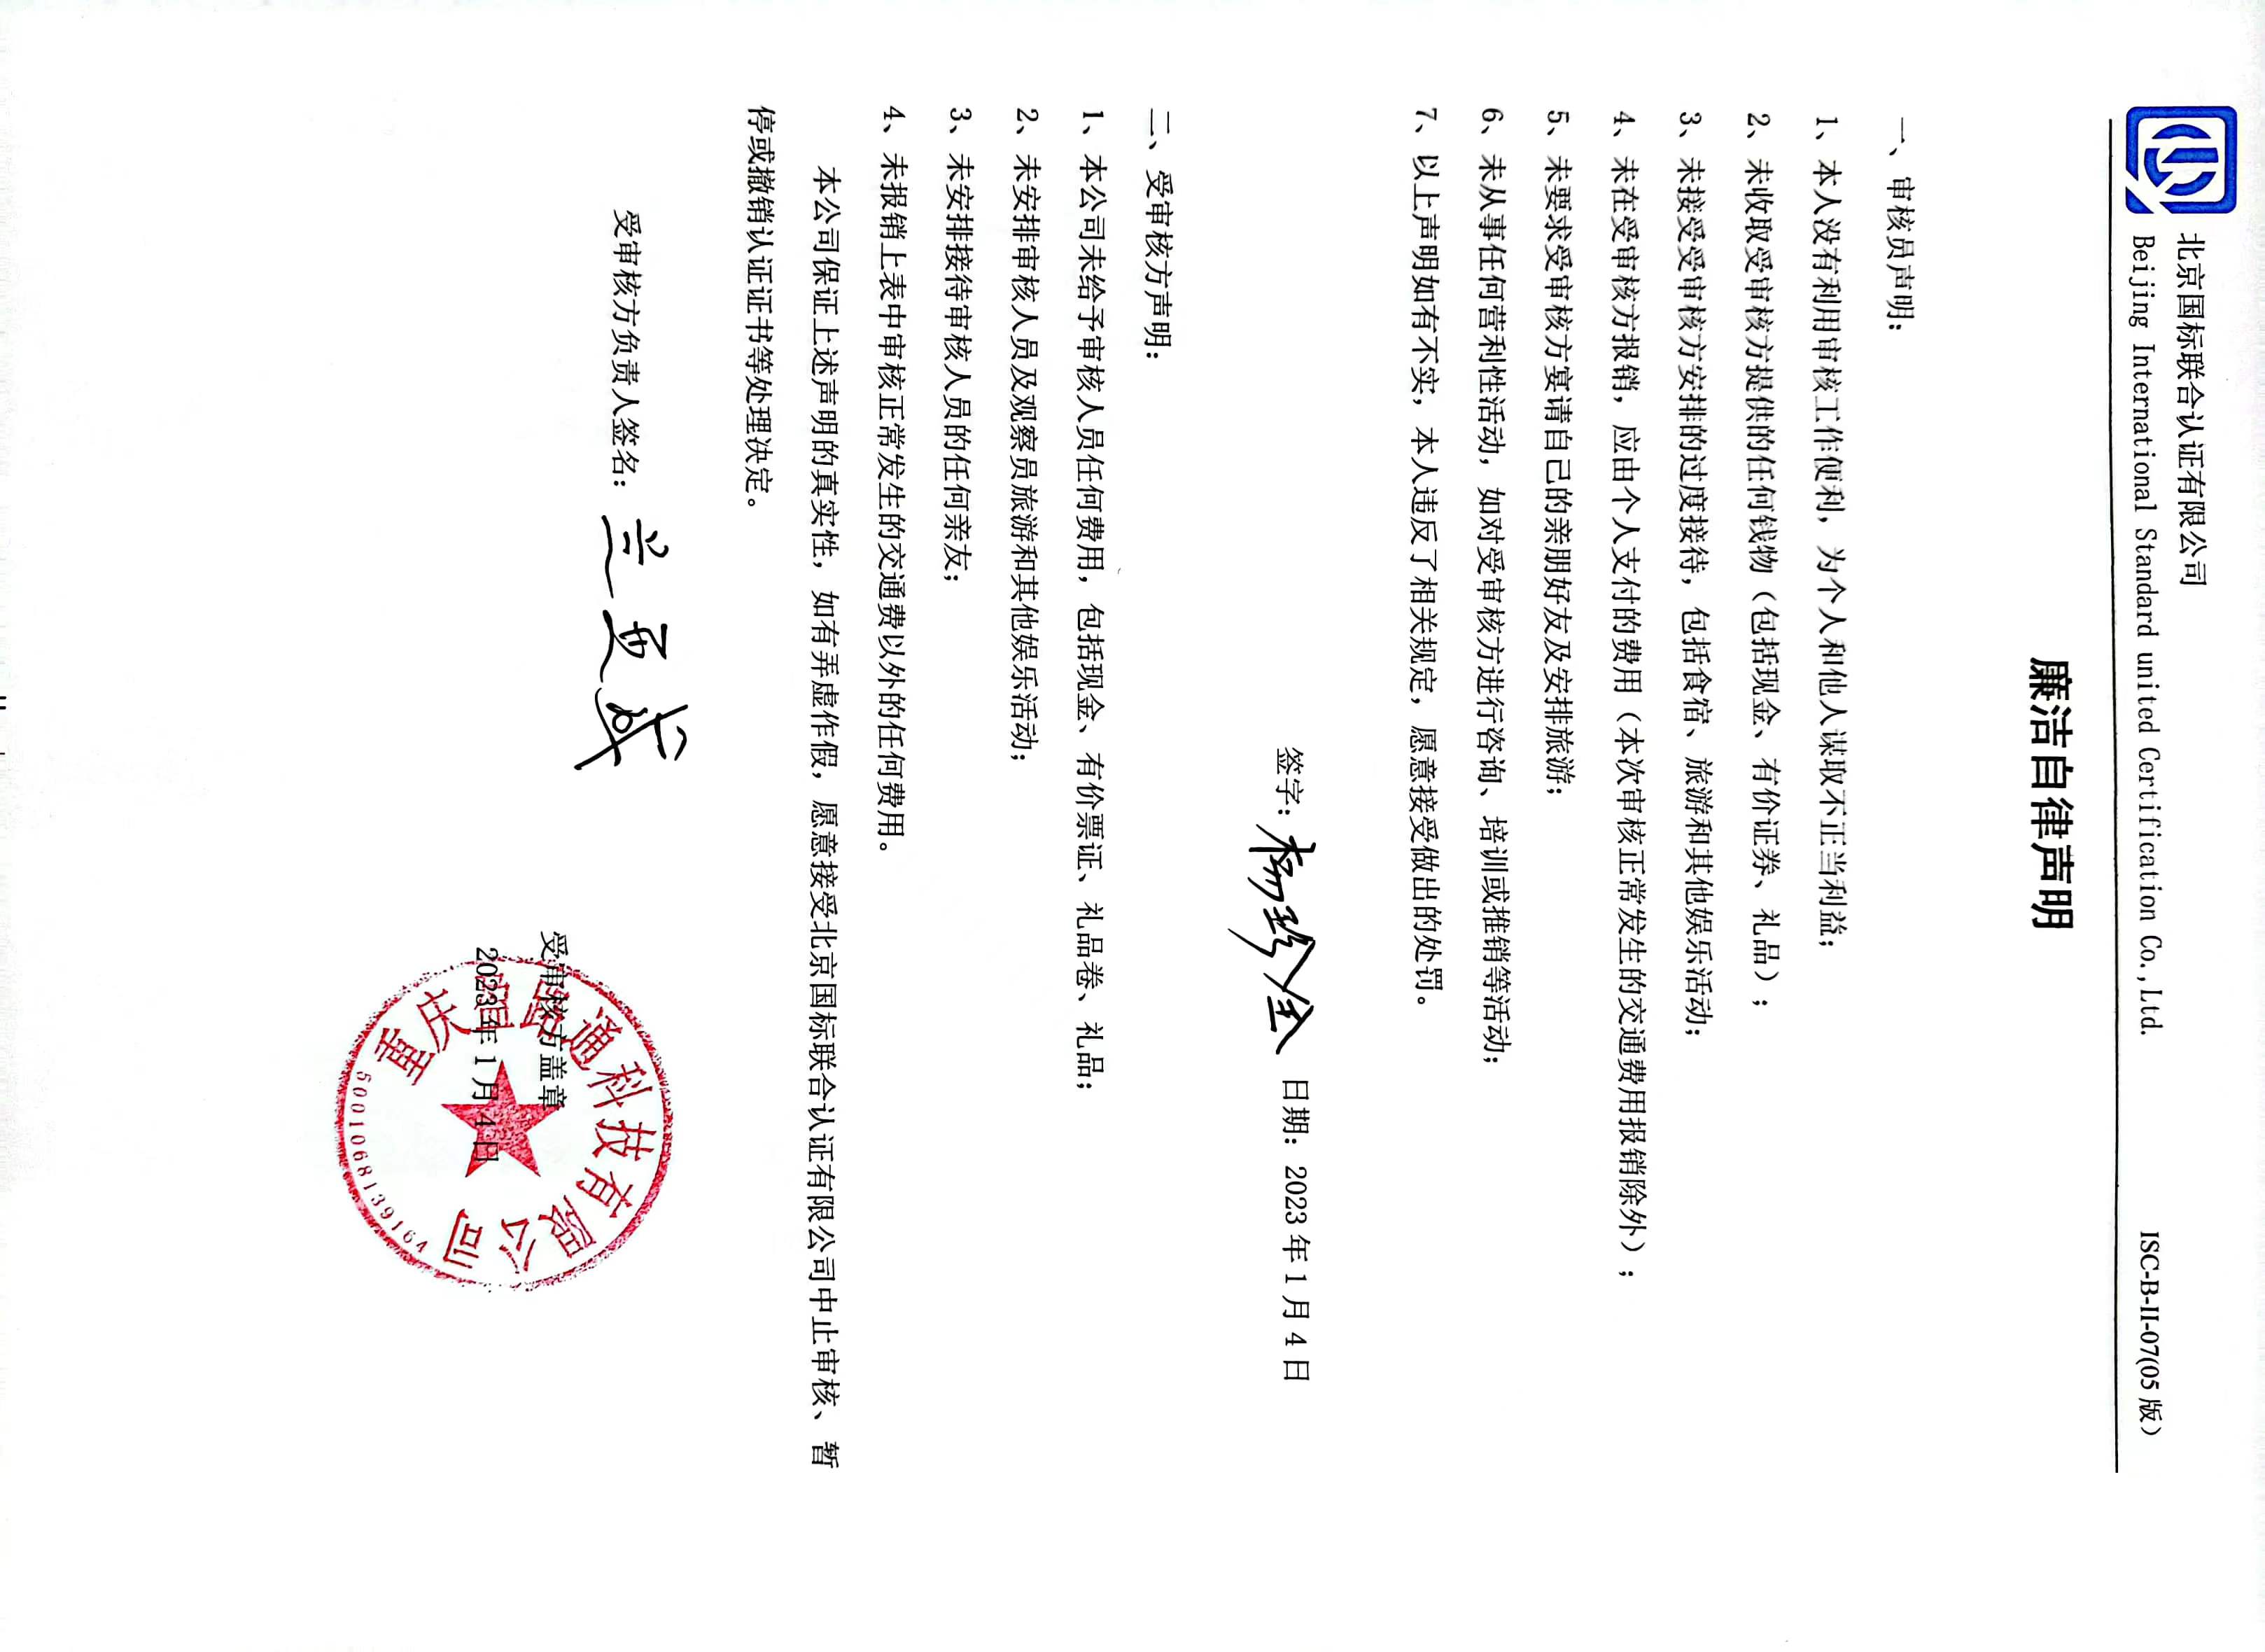 北京国标联合认证有限公司
Beijing International Standard united Certification Co.,Ltd.
ISC-B-II-07(05 版)
廉洁自律声明
一、审核员声明：
1、本人没有利用审核工作便利，为个人和他人谋取不正当利益；
2、未收取受审核方提供的任何钱物（包括现金、有价证券、礼品）；
3、未接受受审核方安排的过度接待，包括食宿、旅游和其他娱乐活动；
4、未在受审核方报销，应由个人支付的费用（本次审核正常发生的交通费用报销除外）；
5、未要求受审核方宴请自己的亲朋好友及安排旅游；
6、未从事任何营利性活动，如对受审核方进行咨询、培训或推销等活动；
7、以上声明如有不实，本人违反了相关规定，愿意接受做出的处罚。
签字：杨珍全 日期：2023 年 1 月 4 日
二、受审核方声明：
1、本公司未给予审核人员任何费用，包括现金、有价票证、礼品卷、礼品；
2、未安排审核人员及观察员旅游和其他娱乐活动；
3、未安排接待审核人员的任何亲友；
4、未报销上表中审核正常发生的交通费以外的任何费用。
本公司保证上述声明的真实性，如有弄虚作假，愿意接受北京国标联合认证有限公司中止审核、暂
停或撤销认证证书等处理决定。
受审核方负责人签名：
受审核方盖章
2023年 1 月 4 日
重庆 路通科技有限公司
5001068139164